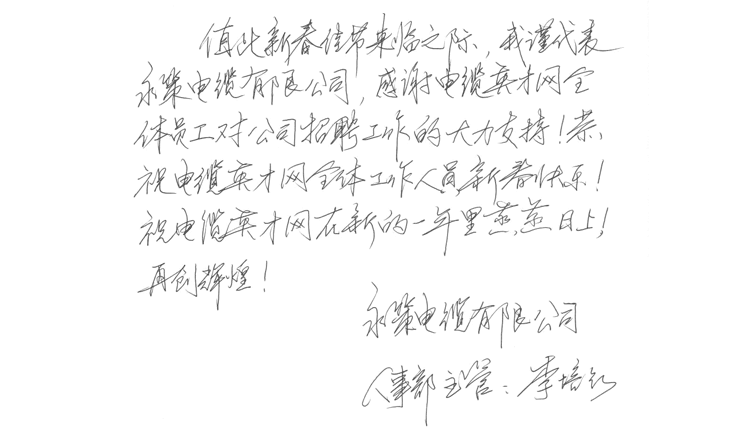 值此新春佳节来临之际，我谨代表
永策电缆有限公司，感谢电缆英才网全
体员工对公司招聘工作的大力支持！恭
祝电缆英才网全体工作人员新春快乐！
祝电缆英才网在新的一年里蒸蒸日上！
再创辉煌！
永策电缆有限公司
人事部主管：李培